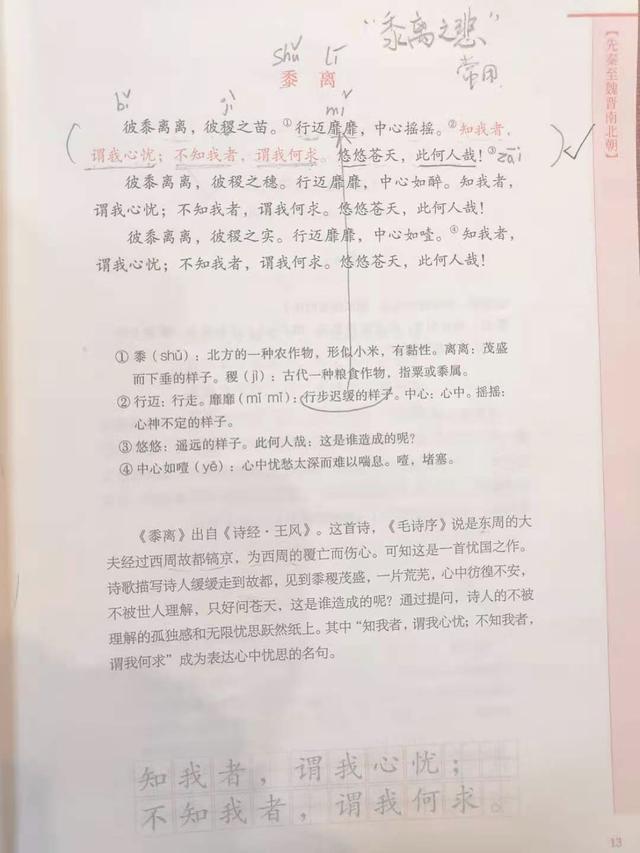 “黍离之悲”
常用
shǔ lí
黍离
bǐ jì mǐ
彼黍离离，彼稷之苗。①行迈靡靡，中心摇摇。②知我者，
谓我心忧；不知我者，谓我何求。悠悠苍天，此何人哉！③zāi
彼黍离离，彼稷之穗。行迈靡靡，中心如醉。知我者，
谓我心忧；不知我者，谓我何求。悠悠苍天，此何人哉！
彼黍离离，彼稷之实。行迈靡靡，中心如噎。④知我者，
谓我心忧；不知我者，谓我何求。悠悠苍天，此何人哉！
①黍（shǔ）：北方的一种农作物，形似小米，有黏性。离离：茂盛
而下垂的样子。稷（jì）：古代一种粮食作物，指粟或黍属。
②行迈：行走。靡靡（mǐ mǐ）：行步迟缓的样子。中心：心中。摇摇：
心神不定的样子。
③悠悠：遥远的样子。此何人哉：这是谁造成的呢？
④中心如噎（yē）：心中忧愁太深而难以喘息。噎，堵塞。
《黍离》出自《诗经·王风》。这首诗，《毛诗序》说是东周的大
夫经过西周故都镐京，为西周的覆亡而伤心。可知这是一首忧国之作。
诗歌描写诗人缓缓走到故都，见到黍稷茂盛，一片荒芜，心中彷徨不安，
不被世人理解，只好问苍天，这是谁造成的呢？通过提问，诗人的不被
理解的孤独感和无限忧思跃然纸上。其中“知我者，谓我心忧；不知我者，
谓我何求”成为表达心中忧思的名句。
知我者，谓我心忧；
不知我者，谓我何求。
【先秦至魏晋南北朝】
13